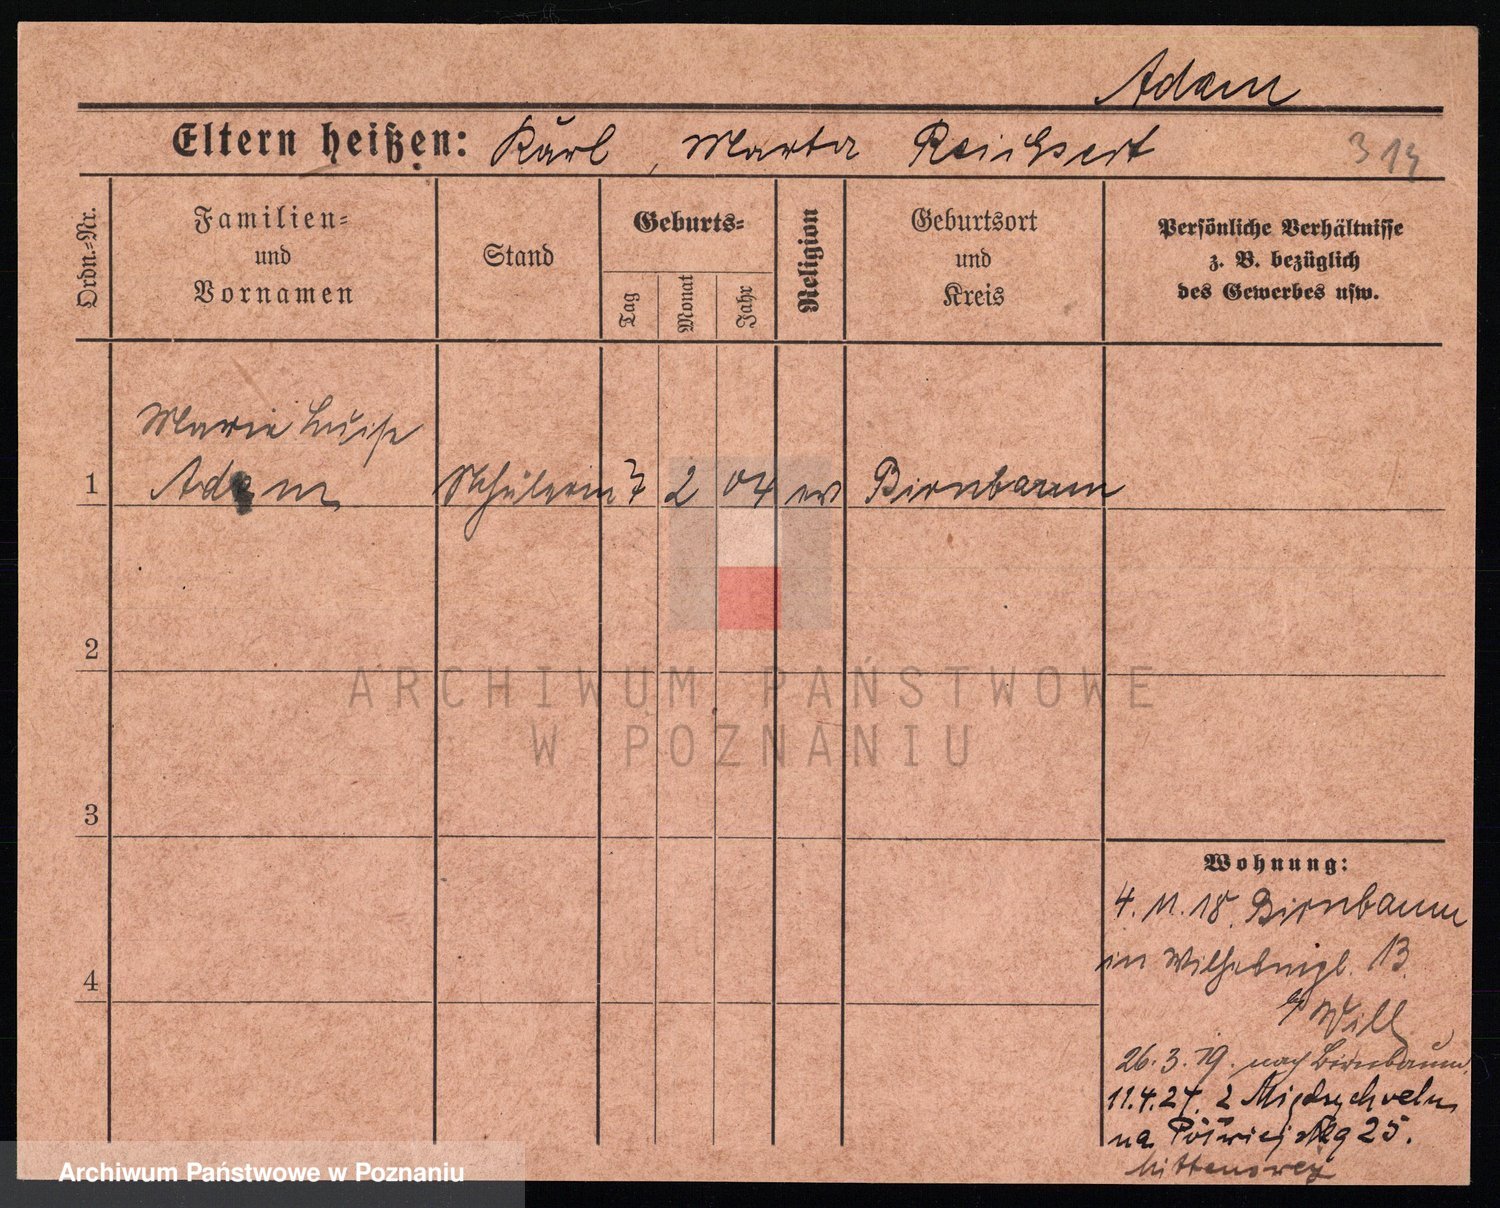 Adam
Eltern heißen: Karl, Marta Reichert
314
Ordn.=Nr.
Familien=
und
Vornamen
Stand
Geburts=
Tag
Monat
Jahr
Religion
Geburtsort
und
Kreis
Persönliche Verhältnisse
z. B. bezüglich
des Gewerbes usw.
Marie Luise
1 Adam Schülerin 7 2 04 ev Birnbaum
2
3
4
ARCHIWUM PAŃSTWOWE
W POZNANIU
Wohnung:
4. 11. 18. Birnbaum
in 13.
Will
26. 3. 19. nach Birnbaum.
11.4.24. z Międzychodu
na 25.
Archiwum Państwowe w Poznaniu